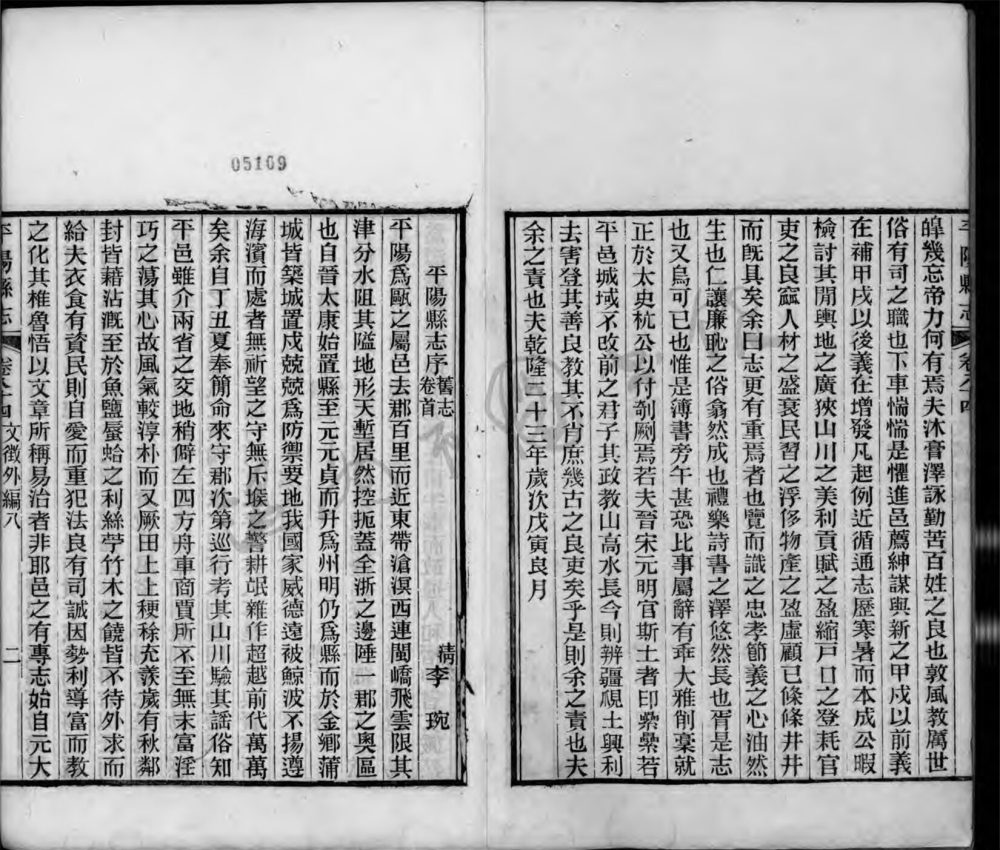 05109
皡幾忘帝力何有焉夫沐膏澤詠勤苦百姓之良也敦風教厲世
俗有司之職也下車惴惴是懼進邑薦紳謀與新之甲戌以前義
在補甲戌以後義在增發凡起例近循通志歷寒暑而本成公暇
檢討其開輿地之廣狹山川之美利貢賦之盈縮戶口之登耗官
吏之良窳人材之盛衰民習之浮侈物產之盈虛顧已條條井井
而旣具矣余曰志更有重焉者也覽而識之忠孝節義之心油然
生也仁讓廉恥之俗翕然成也禮樂詩書之澤悠然長也胥是志
也又烏可已也惟是簿書旁午甚恐比事屬辭有乖大雅削稾就
正於太史杭公以付剞劂焉若夫晉宋元明官斯土者印纍纍若
平邑城域不改前之君子其政教山高水長今則辨疆覛土興利
去害登其善良教其不肖庶幾古之良吏矣乎是則余之責也夫
余之責也夫乾隆二十三年歲次戊寅良月
平陽縣志
卷八十四
平陽縣志序 舊志卷首
清李琬
平陽爲甌之屬邑去郡百里而近東帶滄溟西連閩嶠飛雲限其
津分水阻其隘地形天塹居然控扼蓋全浙之邊陲一郡之奧區
也自晉太康始置縣至元元貞而升爲州明仍爲縣而於金鄉蒲
城皆築城置戍兢兢爲防禦要地我國家威德遠被鯨波不揚遵
海濱而處者無祈望之守無斥堠之警耕氓雜作超越前代萬萬
矣余自丁丑夏奉簡命來守郡次第巡行考其山川驗其謠俗知
平邑雖介兩省之交地稍僻左四方舟車商賈所不至無末富淫
巧之蕩其心故風氣較淳朴而又厥田上上稉稌充羨歲有秋鄰
封皆藉沾漑至於魚鹽蜃蛤之利絲苧竹木之饒皆不待外求而
給夫衣食有資民則自愛而重犯法良有司誠因勢利導富而教
之化其椎魯悟以文章所稱易治者非耶邑之有專志始自元大
平陽縣志
卷八十四 文徵外編八
二